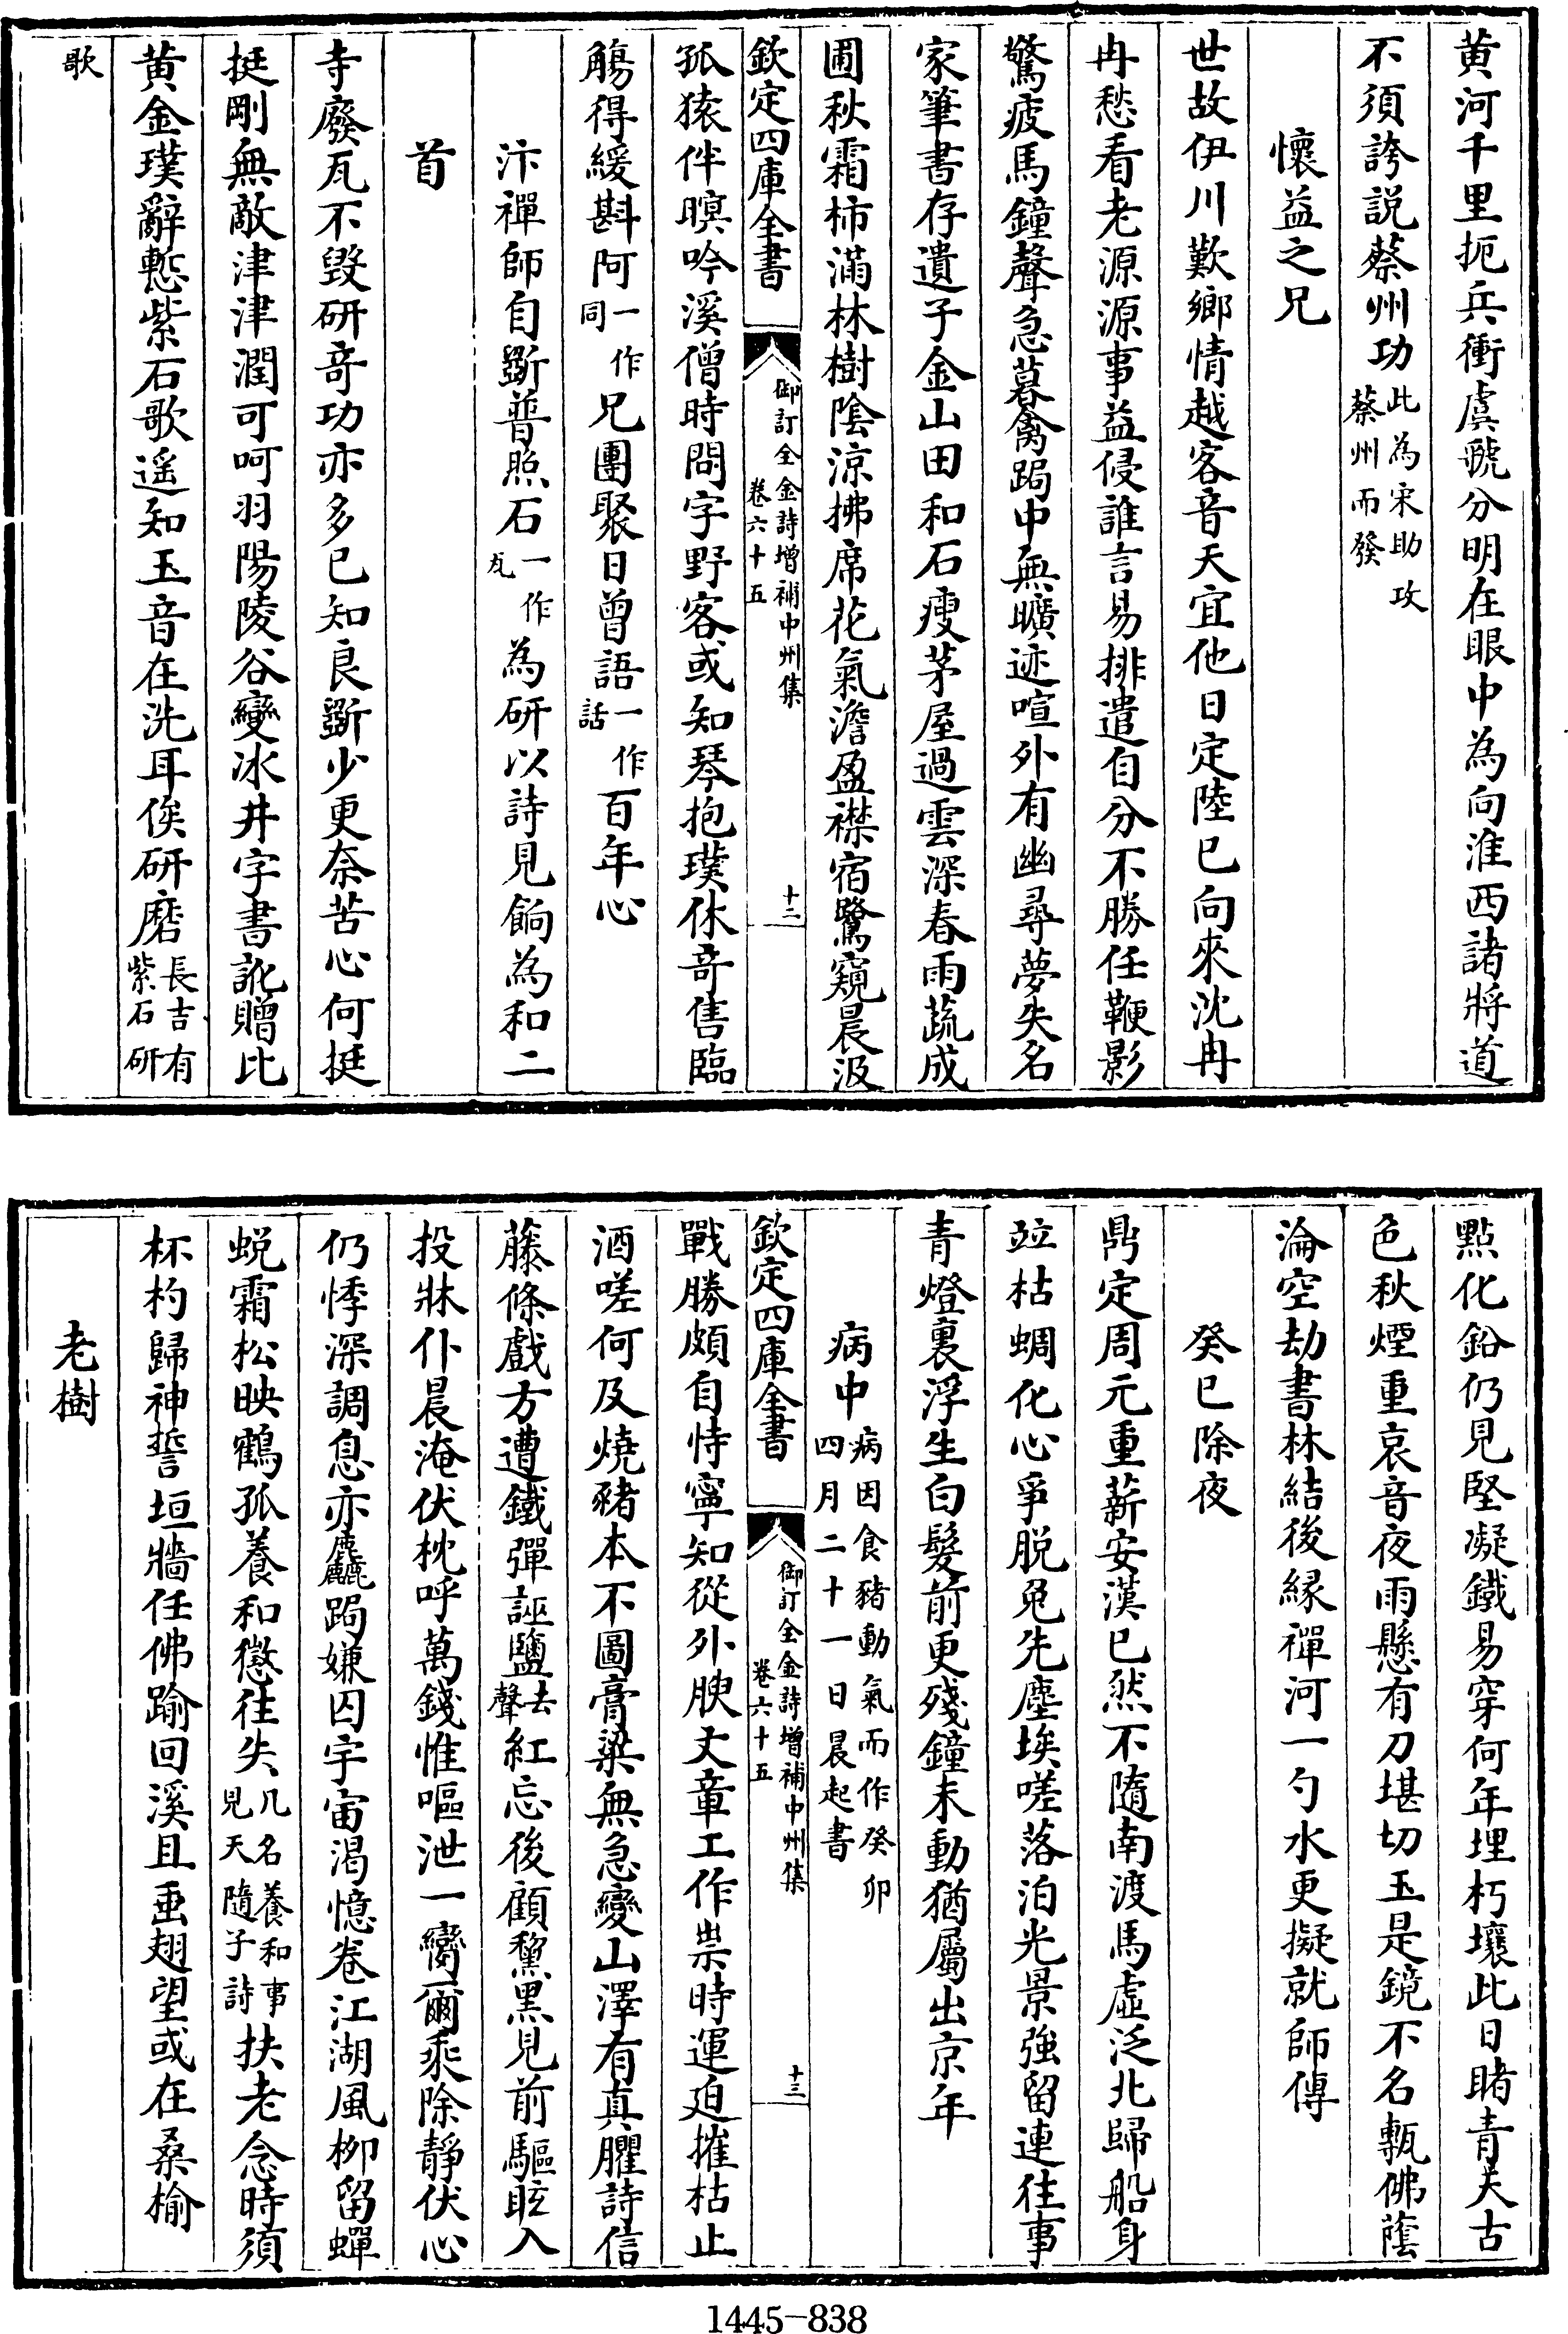 黄河千里扼兵衝虞虢分明在眼中為向淮西諸將道
不須誇説蔡州功此為宋助攻蔡州而發
懷益之兄
世故伊川歎鄉情越客音天宜他日定陸已向來沈冉
冉愁看老源源事益侵誰言易排遣自分不勝任鞭影
驚疲馬鐘聲急暮禽跼中無曠迹喧外有幽尋夢失名
家筆書存遺子金山田和石瘦茅屋過雲深春雨蔬成
圃秋霜柿滿林樹陰涼拂席花氣澹盈襟宿鷺窺晨汲
欽定四庫全書 御訂全金詩增補中州集 卷六十五 十二
孤猿伴暝吟溪僧時問字野客或知琴抱璞休竒售臨
觴得緩斟阿一作同兄團聚日曾語一作話百年心
汴禪師自斵普照石一作瓦為研以詩見餉為和二
首
寺廢瓦不毀研竒功亦多已知良斵少更奈苦心何挺
挺剛無敵津津潤可呵羽陽陵谷變冰井字書訛贈比
黄金璞辭慙紫石歌遥知玉音在洗耳俟研磨長吉有紫石研
歌
點化鉛仍見堅凝鐵易穿何年埋朽壤此日睹青天古
色秋煙重哀音夜雨懸有刀堪切玉是鏡不名甎佛蔭
淪空劫書林結後緣禪河一勺水更擬就師傳
癸巳除夜
鼎定周元重薪安漢已然不隨南渡馬虛泛北歸船身
竝枯蜩化心爭脱兔先塵埃嗟落泊光景強留連往事
青燈裏浮生白髮前更殘鐘未動猶屬出京年
病中病因食豬動氣而作癸卯四月二十一日晨起書
欽定四庫全書 御訂全金詩增補中州集 卷六十五 十三
戰勝頗自恃寧知從外腴文章工作祟時運迫摧枯止
酒嗟何及燒豬本不圖膏粱無急變山澤有真臞詩信
藤條戲方遭鐵彈誣鹽去聲紅忘後顧黧黑見前驅眩入
投牀仆晨淹伏枕呼萬錢惟嘔泄一臠爾乘除靜伏心
仍悸深調息亦麤跼嫌囚宇宙渴憶卷江湖風柳留蟬
蜕霜松映鶴孤養和懲往失几名養和事見天隨子詩扶老念時須
杯杓歸神誓垣牆任佛踰回溪且垂翅望或在桑榆
老樹
1445-838